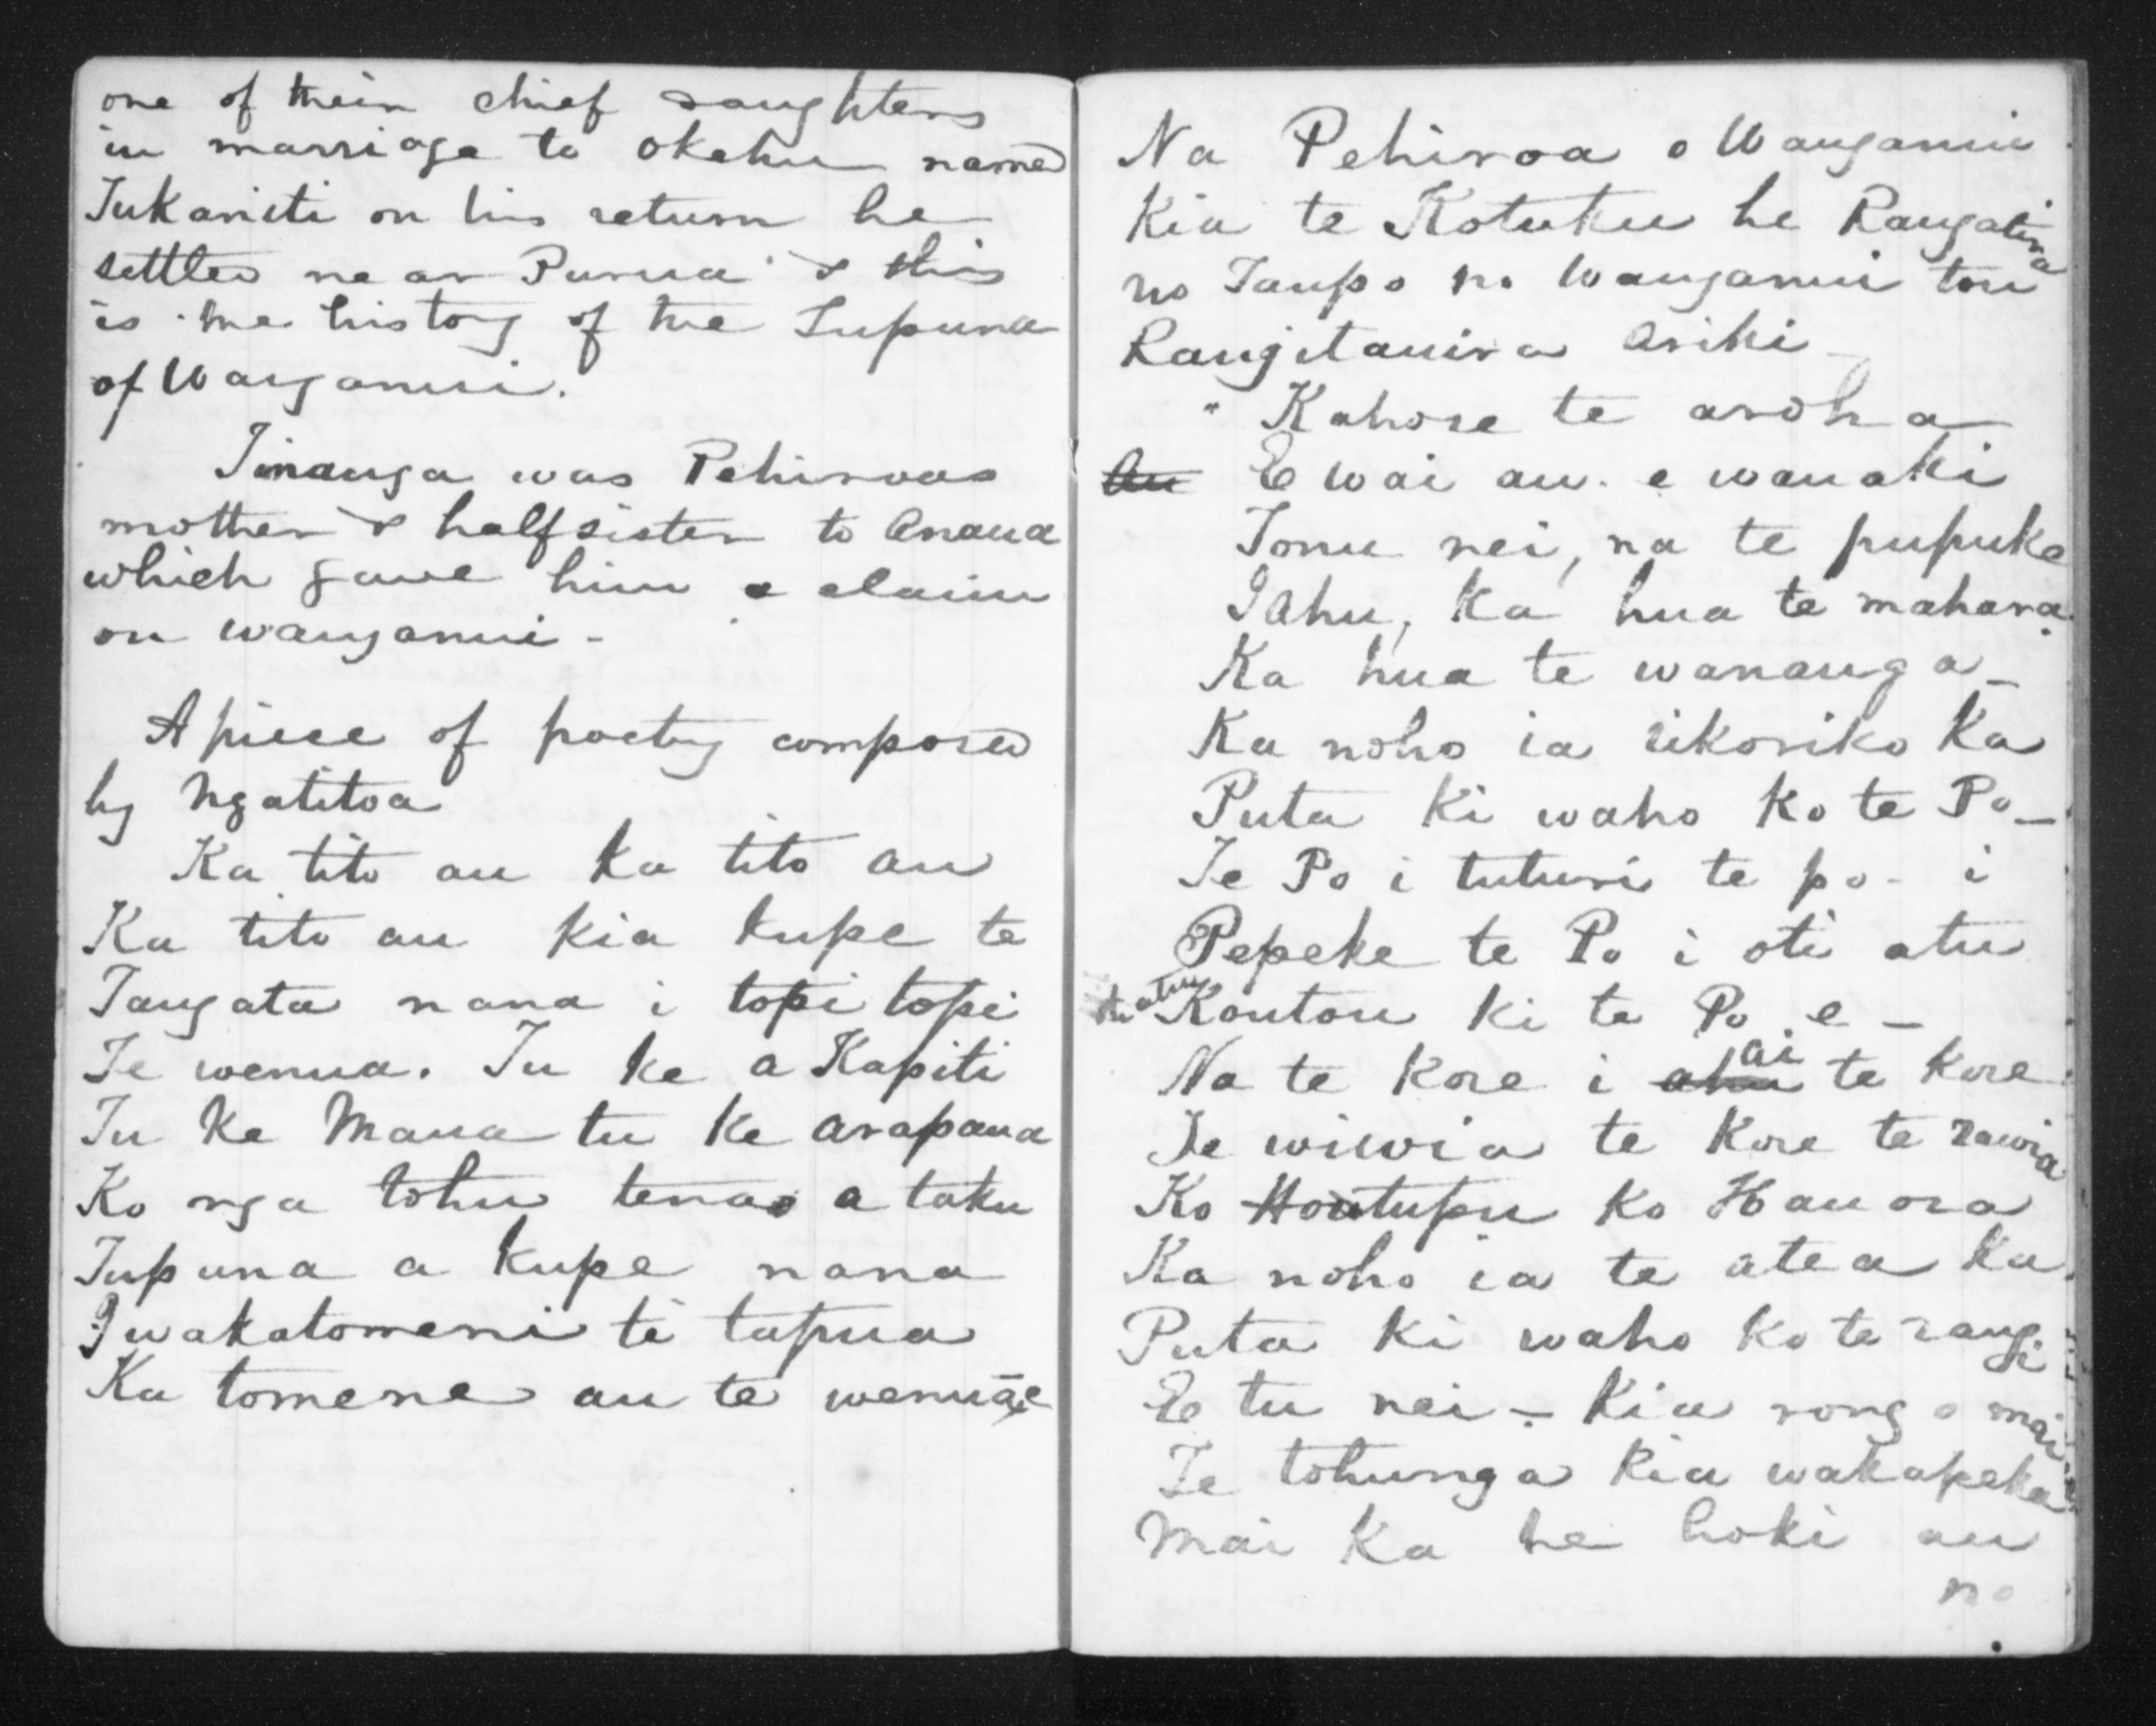 one of their chief daughters
in marriage to Okehu named
Tukaniti on his return he
settled near Purua & this
is the history of the Tupuna
of Wanganui.
Tinanga was Pehiroas
mother & half sister to Anaua
which gave him a claim
on Wanganui -
A piece of poetry composed
by Ngatitoa
Ka tito au ka tito au
Ka tito au kia kupe te
Tangata nana i topi topi
Te wenua. Tu ke a Kapiti
Tu ke Mana tu ke arapaua
Ko nga tohu tena a taku
Tupuna a kupe nana
I wakatomene te tapua
Ka tomene au te wenua e
Na Pehiroa o Wanganui
Kia te Kotuku he Rangatira
no Taupo no Wanganui tou
Rangitauira Ariki -
" Kahore te aroha
Au E wai au. e wauaki
Tonu nei, na te pupuke
I Ahu, ka hua te mahara.
Ka hua te wananga -
Ka noho ia rikoriko ka
Puta ki waho ko te Po -
Te Po i tuturi te po - i
Pepeke te Po i oti atu
atu Koutou ki te Po e -
Na te kore i ahu ai te kore
Te wiwia te kore te rawia
Ko Hautupu ko Hau ora
Ka noho ia te atea ka
Puta ki waho ko te rangi
E tu nei - Kia rongo mai
Te tohunga kia wakapeka
Mai ka he hoki au
no